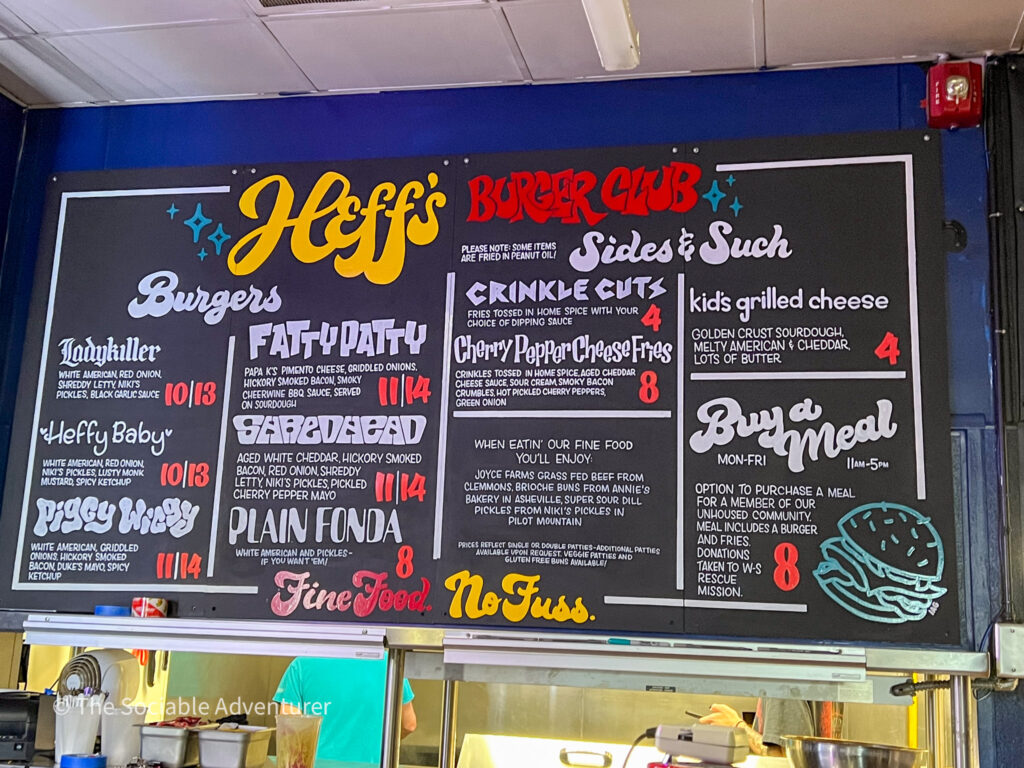 Heff's BURGER CLUB
Burgers
Ladykiller
WHITE AMERICAN, RED ONION,
SHREDDY LETTY, NIKI'S
PICKLES, BLACK GARLIC SAUCE
10|13
Heffy Baby
WHITE AMERICAN, RED ONION,
NIKI'S PICKLES, LUSTY MONK
MUSTARD, SPICY KETCHUP
10|13
Piggy Wiggy
WHITE AMERICAN, GRIDDLED
ONIONS, HICKORY SMOKED
BACON, DUKE'S MAYO, SPICY
KETCHUP
11|14
FATTY PATTY
PAPA K'S PIMENTO CHEESE, GRIDDLED ONIONS,
HICKORY SMOKED BACON, SMOKY
CHEERWINE BBQ SAUCE, SERVED
ON SOURDOUGH
11|14
SHREDHEAD
AGED WHITE CHEDDAR, HICKORY SMOKED
BACON, RED ONION, SHREDDY
LETTY, NIKI'S PICKLES, PICKLED
CHERRY PEPPER MAYO
11|14
PLAIN FONDA
WHITE AMERICAN AND PICKLES-
IF YOU WANT 'EM!
8
PLEASE NOTE: SOME ITEMS
ARE FRIED IN PEANUT OIL!
Sides & Such
CRINKLE CUTS
FRIES TOSSED IN HOME SPICE WITH YOUR
CHOICE OF DIPPING SAUCE
4
Cherry Pepper Cheese Fries
CRINKLES TOSSED IN HOME SPICE, AGED CHEDDAR
CHEESE SAUCE, SOUR CREAM, SMOKY BACON
CRUMBLES, HOT PICKLED CHERRY PEPPERS,
GREEN ONION
8
WHEN EATIN' OUR FINE FOOD
YOU'LL ENJOY:
JOYCE FARMS GRASS FED BEEF FROM
CLEMMONS, BRIOCHE BUNS FROM ANNIE'S
BAKERY IN ASHEVILLE, SUPER SOUR DILL
PICKLES FROM NIKI'S PICKLES IN
PILOT MOUNTAIN
PRICES REFLECT SINGLE OR DOUBLE PATTIES-ADDITIONAL PATTIES
AVAILABLE UPON REQUEST. VEGGIE PATTIES AND
GLUTEN FREE BUNS AVAILABLE!
kid's grilled cheese
GOLDEN CRUST SOURDOUGH,
MELTY AMERICAN & CHEDDAR,
LOTS OF BUTTER.
4
Buy a
Meal
MON-FRI
11AM-5PM
OPTION TO PURCHASE A MEAL
FOR A MEMBER OF OUR
UNHOUSED COMMUNITY.
MEAL INCLUDES A BURGER
AND FRIES.
DONATIONS
TAKEN TO W-S
RESCUE
MISSION.
8
JAG
Fine Food. No Fuss.
FIRE
© The Sociable Adventurer